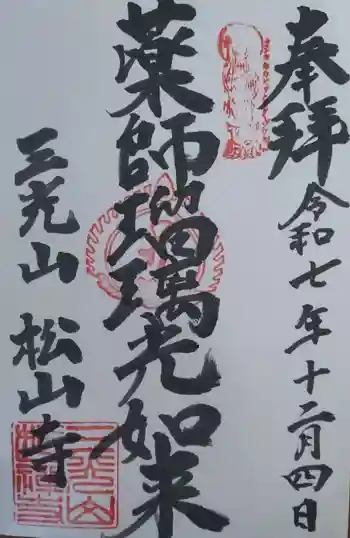 奉拝
令和七年十二月四日
薬師瑠璃光如来
三光山 松山寺